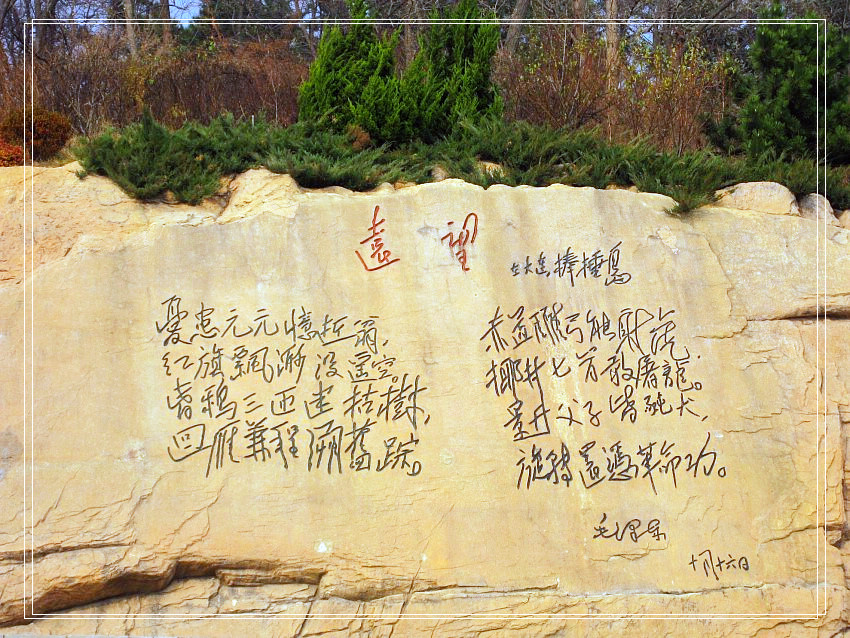 遠望
在大連棒棰島
憂患元元憶逝翁,
紅旗飄渺没遥空。
昏鴉三匝迷枯樹,
回雁兼程溯舊踪。
赤道雕弓能射虎,
椰林匕首敢屠龍。
景升父子皆豚犬,
旋轉還憑革命功。
毛澤東
十月十六日